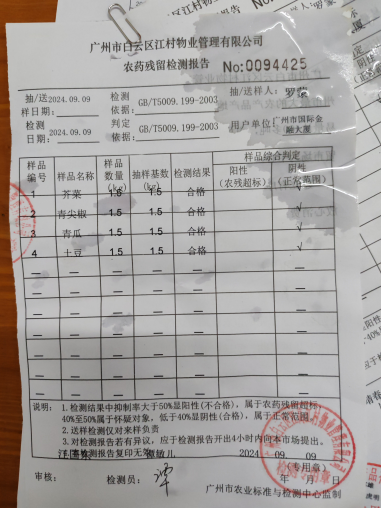 广州市白云区江村物业管理有限公司
农药残留检测报告 No:0094425
抽/送样日期: 2024.09.09 检测依据: GB/T5009.199-2003 抽/送样人: 罗蒙
检测日期: 2024.09.09 判定依据: GB/T5009.199-2003 用户单位: 广州市国际金融大厦
样品编号 样品名称 样品数量(kg) 抽样基数(kg) 检测结果 样品综合判定
阳性(农残超标) 阴性(正常范围)
1 芥菜 1.6 1.5 合格 √
2 青尖椒 1.5 1.5 合格 √
3 青瓜 1.5 1.5 合格 √
4 土豆 1.5 1.5 合格 √
说明: 1.检测结果中抑制率大于50%显阳性(不合格),属于农药残留超标,
40%至50%属于怀疑对象,低于40%显阴性(合格),属于正常范围。
2.送样检测仅对来样负责
3.对检测报告若有异议,应于检测报告开出4小时内向本市场提出。
检测报告复印无效
敏儿 2024. 09. 09
(专用章)
审核: 检测员: 年 月 日
广州市农业标准与检测中心监制